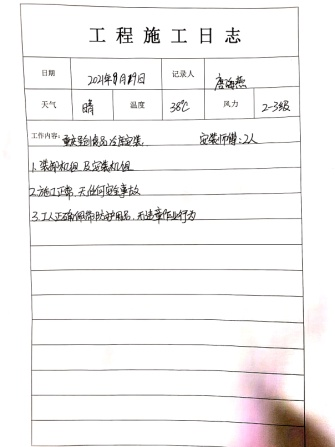 工程施工日志
日期 2021年8月19日 记录人 唐海燕
天气 晴 温度 38℃ 风力 2-3级
工作内容: 食品冷库安装 安装师傅:2人
1. 装卸机组及安装机组
2. 施工正常,无任何安全事故
3. 工人正确佩带防护用品,无违章作业行为